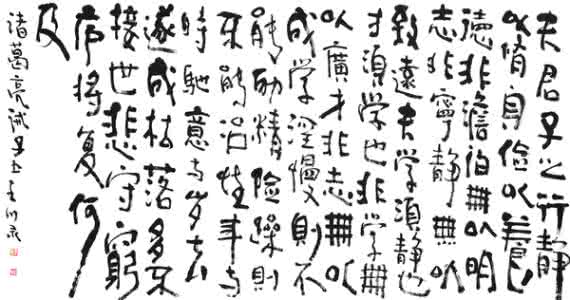 夫君子之行靜
以脩身儉以養
德非澹泊無以明
志非寧靜無以
致遠夫學須靜也
才須學也非學無
以廣才非志無以
成学淫慢則不
能励精險躁則
不能治性年与
時馳意与岁去
遂成枯落多不
接世悲守窮
庐將复何
及
諸葛亮诫子书